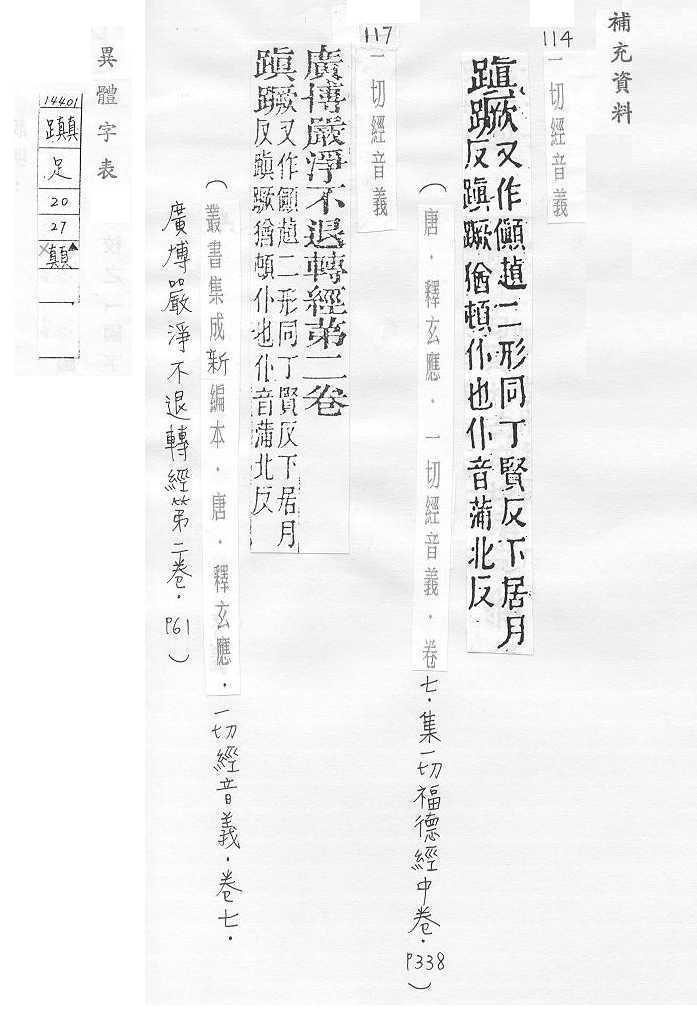 補充資料
114
一切經音義
蹎蹶又作二形同丁賢反下居月
反蹎蹶猶頓仆也仆音蒲北反
(唐．釋玄應．一切經音義．卷七．集一切福德經中卷．P338)
117
一切經音義
廣博嚴淨不退轉經第二卷
蹎蹶又作二形同丁賢反下居月
反蹎蹶猶頓仆也仆音蒲北反
(叢書集成新編本．唐．釋玄應．一切經音義．卷七．
廣博嚴淨不退轉經第二卷．P61)
異體字表
14401
足
20
27